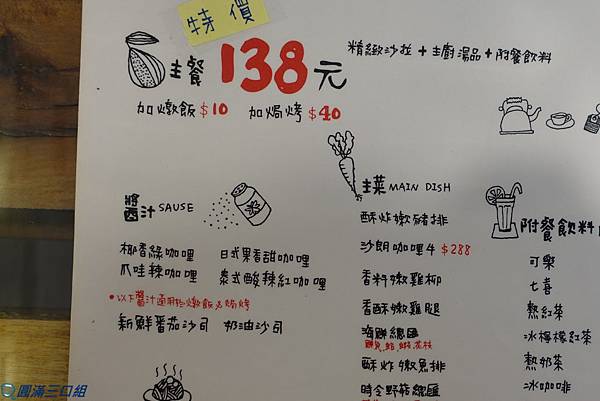 特價
主餐 138元
精緻沙拉+主廚湯品+附餐飲料
加燉飯$10 加焗烤$40
醬
鹵汁 SAUSE
椰香綠咖哩 日式果香甜咖哩
爪哇辣咖哩 泰式酸辣紅咖哩
•以下醬汁適用於燉飯&焗烤
新鮮番茄沙司 奶油沙司
主菜 MAIN DISH
酥炸嫩豬排
沙朗咖哩牛 $288
香料嫩雞柳
香酥嫩雞腿
海鮮總匯
酥炸嫩魚排
時令野菇總匯
附餐飲料
可樂
七喜
熱紅茶
冰檸檬紅茶
熱奶茶
冰咖啡
圓滿三口組